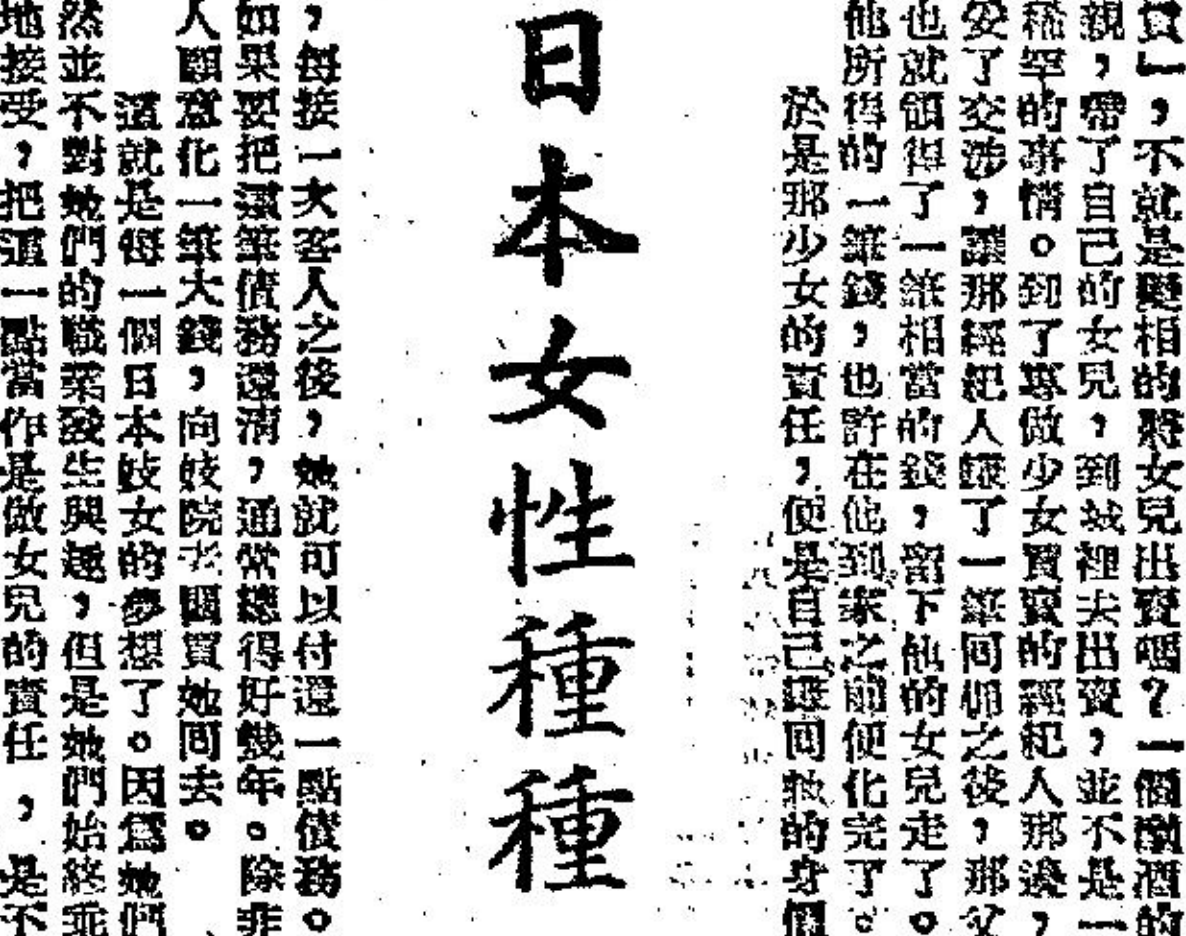 賣」，不就是變相的將女兒出賣嗎？一個酗酒的
親，帶了自己的女兒，到城裡去出賣，並不是一
稀罕的事情。到了專做少女買賣的經紀人那邊，
妥了交涉，讓那經紀人賺了一筆回佣之後，那父
也就領得了一筆相當的錢，留下他的女兒走了。
他所得的一筆錢，也許在他到家之前便化完了。
於是那少女的責任，便是自己贖回她的身價
日本女性種種
，每接一次客人之後，她就可以付還一點債務。
如果要把這筆債務還清，通常總得好幾年。除非
人願意化一筆大錢，向妓院老闆買她回去。
這就是每一個日本妓女的夢想了。因爲她們
然並不對她們的職業發生興趣，但是她們始終乖
地接受，把這一點當作是做女兒的責任，是不